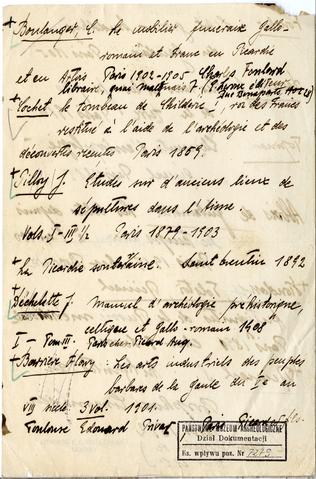 + Boulanger, C. Le mobilier funéraire Gallo-
romain et franc en Picardie
et en Artois Paris 1902-1905 Charles Foulard
libraire, quai Malaquais 7. (
+ Cochet, le tombeau de Childéric I, roi des Francs
restitué à l'aide de l'archéologie et des
découvertes recentes Paris 1859.
+ Pilloy J. Etudes sur d'anciens lieux de
sépultures dans l'Aisne.
Vols. I-III ½ Paris 1879-1903
+ La Picardie souterraine. Saint Quentin 1892
+ Déchelette J. Manuel d'archéologie prehistorique,
celtique et Gallo-romain 1908
I - Tom III. Paris chez Picard Aug.
+ Barrière Flavy Les arts industriels des peuples
barbares de la gaule du Ve au
VIII siècle. 3 Vol. 1901.
Toulouse Edouard Privat Paris Picard
PAŃSTWOWE MUZEUM ARCHEOLOGICZNE
Dział Dokumentacji
Ks. wpływu poz. Nr